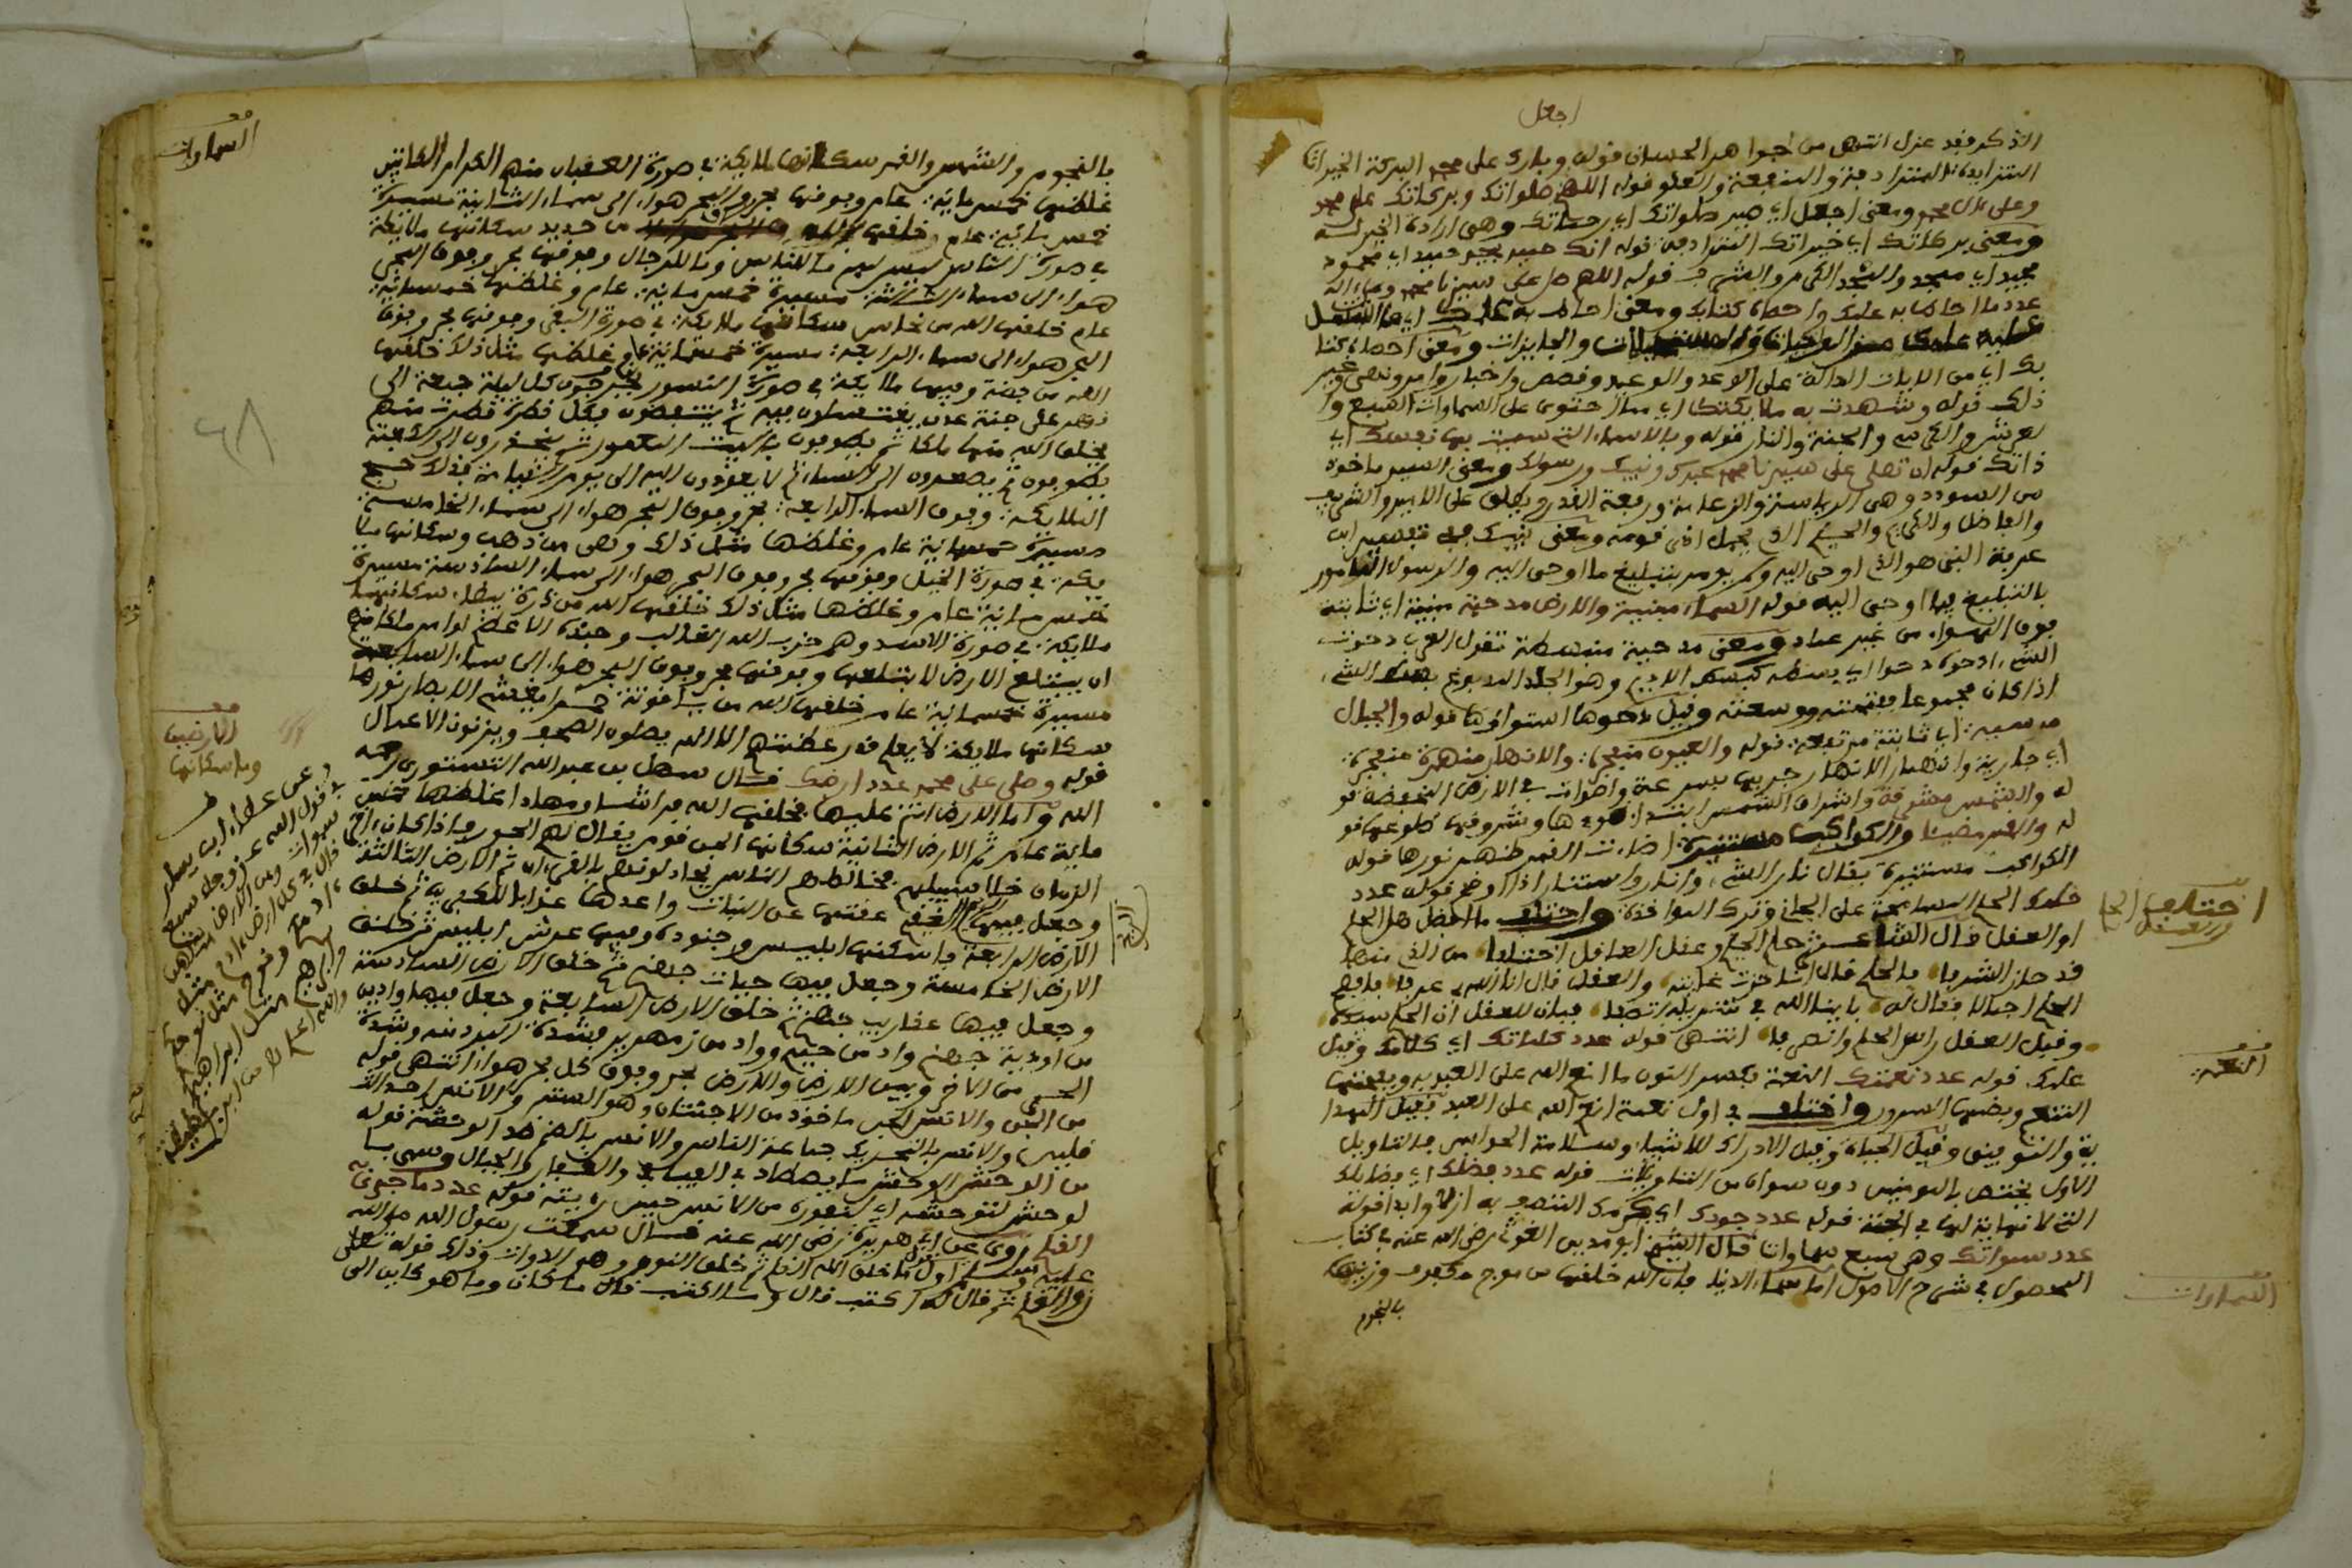 اجعل
الذكر فقد عزل انتهى من الجواهر الحسان قوله وبارك على محمد البركة الخيرات
المتزايدة المترادفة والمنفعة والعلو قوله اللهم صلواتك وبركاتك على محمد
وعلى ءال محمد ومعنى اجعل اي صير صلواتك اي رحماتك وهي ارادة الخير له
ومعنى بركاتك اي خيراتك المترادفة قوله انك حميد مجيد حميد اي محمود
مجيد اي ممجد والمجد الكرم والشرف قوله اللهم صل على سيدنا محمد وعلى ءاله
عدد ما احاط به علمك واحصاه كتابك ومعنى احاط به علمك اي ما اشتمل
عليه علمك من الواجبات والمستحيلات والجايزات ومعنى احصاه كتا
بك اي من الايات الدالة على الوعد والوعيد وقصص واخبار وامر ونهي وغير
ذلك قوله وشهدت به ملايكتك اي مما احتوى على السماوات السبع وا
لعرش والكرسي والجنة والنار قوله وبالاسماء التي سميت بها نفسك اي
ذاتك قوله ان تصلي على سيدنا محمد عبدك ونبيك ورسولك ومعنى السيد ماخوذ
من السودد وهي الرياسة والزعامة ورفعة القدر ويطلق على الامير والشريف
والفاضل والكريم والحليم الذي يحمل اذى قومه ومعنى نبيك في تفسير ابن
عرفة النبي هو الذي اوحي اليه ولم يومر بتبليغ ما اوحي اليه والرسول المامور
بالتبليغ بما اوحي اليه قوله السماء مبنية والارض مدحية مبنية اي ثابتة
فوق الهواء من غير عماد ومعنى مدحية منبسطة تقول العرب دحوت
الشيء ادحوه دحوا اي بسطه كبسط الاديم وهو الجلد المدبوغ بسط الشيء
اذا كان مجموعا ففتحته ووسعته وقيل دحوها استواؤها قوله والجبال
مرسية اي ثابتة مرتفعة قوله والعيون منفجرة والانهار منهمرة منفجرة
اي جارية وانهمار الانهار جريها بسرعة واصوات في الارض المنخفضة قو
له والشمس مشرقة واشراق الشمس ابتداء ضوءها وشروقها طلوعها قو
له والقمر مضيئا والكواكب مستنيرة اضاءت القمر ظهر نورها قوله
الكواكب مستنيرة يقال نار الشيء وانار واستنار اذا اوضح قوله عدد
حلمك الحلم المسامحة على الجاني وترك المواخذة واختلف ما افضل هل الحلم
او العقل قال الشاعر حلم الحليم وعقل العاقل اختلفا من الذي منهما
قد حاز الشرفا فالحلم قال انا حزت غايته والعقل قال انا الله بي عرفا فافصح
الحلم اجلالا فقال له باينا الله في تنزيله اتصفا فبان للعقل ان الحلم سيده
وقبل العقل راس الحلم وانصرفا انتهى قوله عدد كلماتك اي كلامك وقيل
علمك قوله عدد نعمتك النعمة بكسر النون ما انعم الله على العبد به وبفتحها
التنعم وبضمها السرور واختلف في اول نعمة انعم الله على العبد فقيل الهدا
ية والتوفيق وقيل الحياة وقيل الادراك للاشياء وسلامة الحواس فالتاويل
الاول يختص بالمومنين دون سواه من التاويلات قوله عدد فضلك اي فضايلك
التي لا نهاية لها في الجنة قوله عدد جودك اي كرمك المتصف به ازلا وابدا قوله
عدد سمواتك وهي سبع سماوات قال الشيخ ابو مدين الغوث رضي الله عنه في كتاب
المحصول في شرح الاصول اما سماء الدنيا فان الله خلقها من موج مكفوف وزينها
بالنجوم
اختلف الحلم
والعقل
النعمة
السماوات
بالنجوم والشمس والقمر سكانها ملايكة في صورة العقبان منهم الكرام الكاتبين
غلظها خمسماية عام وجوفها بحر وفوق البحر هواء الى سماء الثانية مسيرة
خمسماية عام خلقها الله من حديد سكانها ملايكة
في صورة الناس ليس ما للناس وما للرجال وجوفها بحر وفوق البحر
هواء الى سماء الثالثة مسيرة خمسماية عام وغلظها خمسماية
عام خلقها الله من نحاس سكانها ملايكة في صورة البقر وجوفها بحر وفوق
البحر هواء الى سماء الرابعة مسيرة خمسماية عام وغلظها مثل ذلك خلقها
الله من فضة وفيها ملايكة في صورة النسور يخرجون كل ليلة جمعة الى
نهر على جنة عدن يغتسلون فيه ثم ينتفضون فبكل قطرة قطرت منهم
يخلق الله منها ملكا ثم يطوفون بالبيت المعمور ثم ينحدرون الى الكعبة
يطوفون ثم يصعدون الى السماء ثم لا يعودون اليه الى يوم القيامة فذلك حج
الملايكة وفوق السماء الرابعة بحر وفوق البحر هواء الى سماء الخامسة
مسيرة خمسماية عام وغلظها مثل ذلك وهي من ذهب وسكانها ملا
يكة في صورة الخيل وجوفها بحر وفوق البحر هواء الى سماء السادسة مسيرة
خمسماية عام وغلظها مثل ذلك خلقها الله من درة بيضاء سكانها
ملايكة في صورة الاسد وهم حزب الله الغالب وجنده الاعظم لو امر ملكا منهم
ان يبتلع الارض لابتلعها وجوفها بحر وفوق البحر هواء الى سماء السابعة
مسيرة خمسماية عام خلقها الله من ياقوتة حمراء يغشي الابصار نورها
سكانها ملايكة لا يعلم قدر عظمتهم الا الله يصلون الصبح ويزنون الاعمال
قوله وصلي على محمد عدد ارضك قال سهل بن عبد الله التستوري رحمه
الله واما الارض انتم عليها فخلقها الله فراشا ومهادا غلظها خمس
ماية عام ثم الارض الثانية سكانها الجن قوم يقال لهم الحور فاذا كان ءاخر
الزمان خلا سبيلهم مخالطهم الناس يجادلونهم بالقرءان ثم الارض الثالثة
وجعل فيها الريح العقيم عقمتها عن النبات واعدها عذابا للكفرين ثم خلق
الارض الرابعة واسكنها ابليس وجنوده وفيها عرش ابليس ثم خلق
الارض الخامسة وجعل فيها حيات جهنم ثم خلق الارض السادسة
وجعل فيها عقارب جهنم ثم خلق الارض السابعة وجعل فيها واديين
من اودية جهنم واد من حميم وواد من زمهرير فشدة البرد منه وشدة
الحر من الاخر وبين الارض والارض بحر وفوق كل بحر هواء انتهى قوله
من الجن والانس الجن ماخوذ من الاجتنان وهو الستر والانس ضد الجن
من الوحش الوحش ما يصطاد في الفيافي والقفار والجبال وسمي با
لوحش لتوحشه اي لنفوره من الانس حين رايته قوله عدد ما جرى به
القلم روى عن ابي هريرة رضي الله عنه قال سمعت رسول الله صلى الله
عليه وسلم اول ما خلق الله القلم ثم خلق النون وهو الدوات وذلك قوله تعالى
ن والقلم ثم قال له اكتب قال وما اكتب قال ما كان وما هو كاين الى
السماوات
الارضين
وما سكانها
وعن عطاء ابن يسار
في قول الله عز وجل سبع
سموات ومن الارض مثلهن
قال في كل ارض ءادم مثل
ءادمكم ونوح مثل نوحكم
وابراهيم مثل ابراهيمكم
والله اعلم